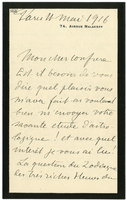 Paris 10 mai 1916
74, Avenue Malakoff
Mon cher confrère
Est il besoin de vous
dire quel plaisir vous
m'avez fait en voulant
bien m'envoyer votre
savante étude d'astro
logique ! et avec quel
intérêt je vous ai lu !
La question du Zodiaque
des très riches Heures du